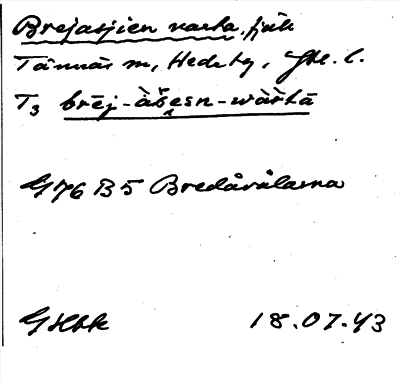 Brejasjien varta, fjäll
Tännäs sn, Hede tg, Jtl. l.
T3 brēj-àšesn-wàřtā
G76 B5 Bredåvålarna
GHbk 18.07.43